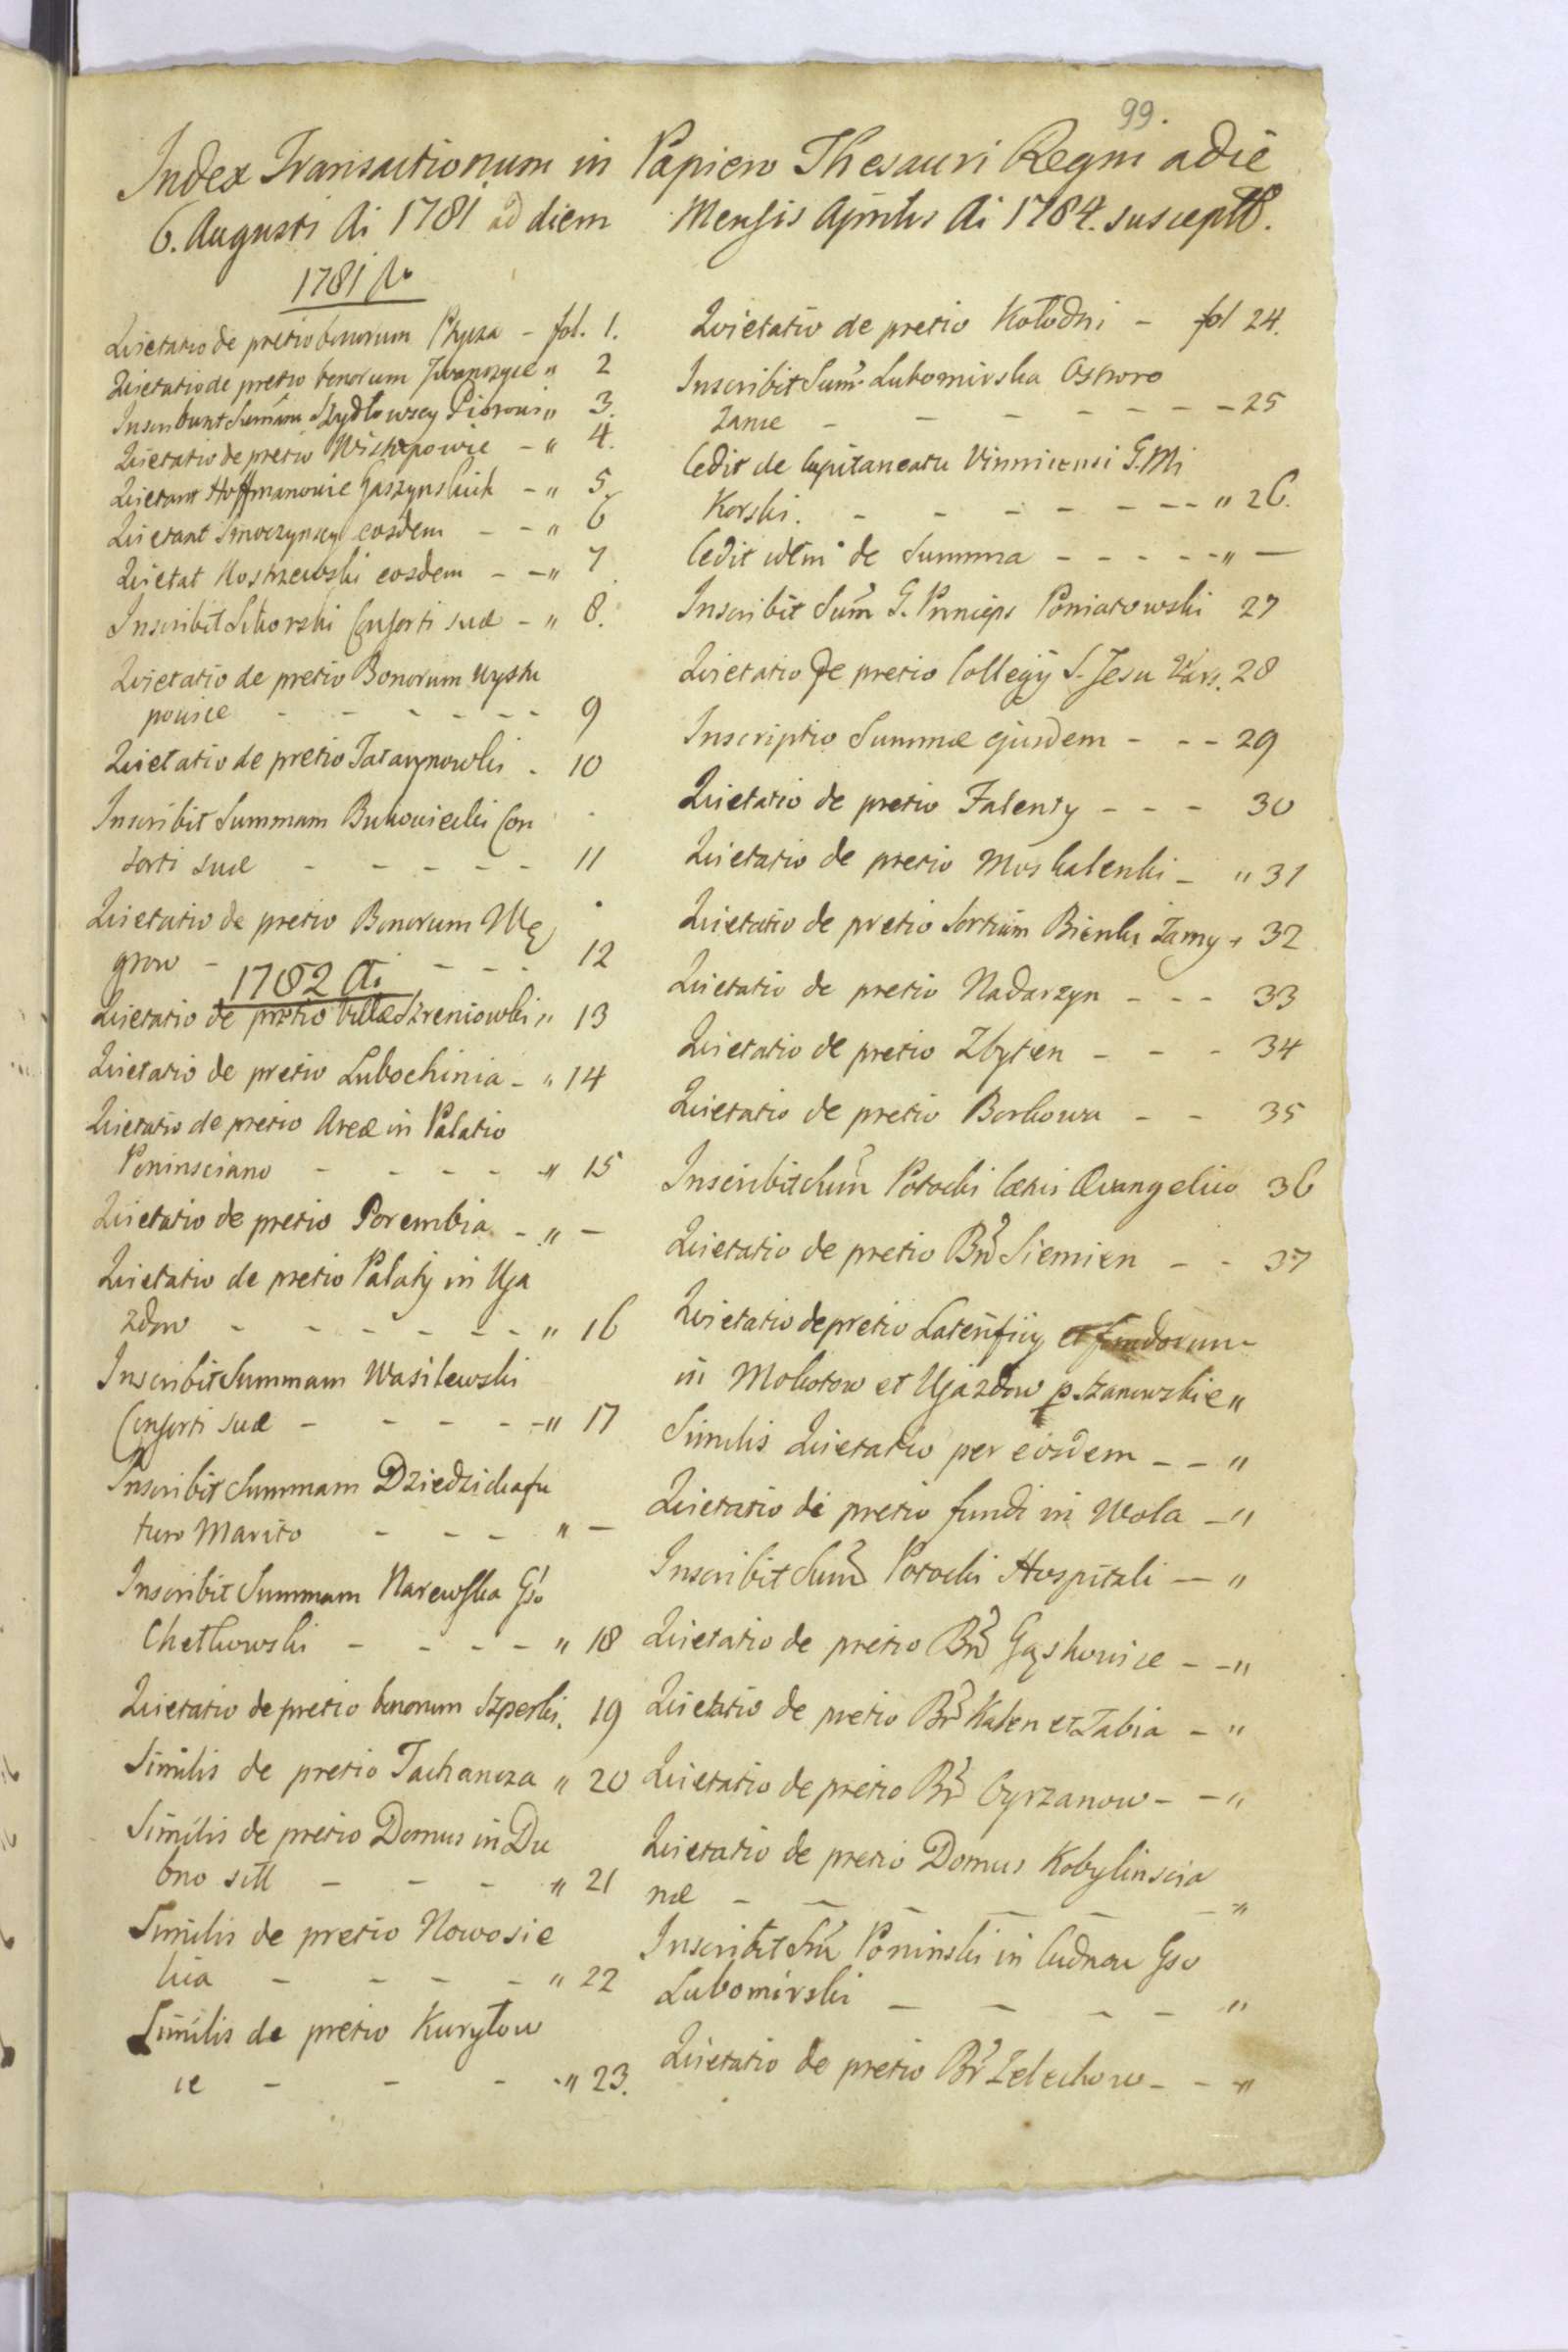 99.
Index Transactionum in Papiero Thesauri Regni a die
6. Augusti Ai 1781 ad diem Mensis Aprilis Ai 1784. suscept.
1781
Quietatio de pretio bonorum Pryza - fol. 1.
Quietatio de pretio bonorum Iwanczyce " 2
Inscribunt Summam Szydłowscy Piorowi " 3.
Quietatio de pretio Wistępowie - " 4.
Quietant Hoffmanowie Gaszynskich - " 5.
Quietant Smoczynscy eosdem - - " 6
Quietat Kostrzewski eosdem - - " 7.
Inscribit Sikorski Consorti suæ - " 8.
Quietatio de pretio Bonorum Wystu
powice - - - - - - 9
Quietatio de pretio Tatarynowki - 10
Inscribit Summam Bukowiecki Con
sorti suæ - - - - - 11
Quietatio de pretio Bonorum Wę
grow - - - - 12
1782 Ai
Quietatio de pretio Villæ Szreniowki " 13
Quietatio de pretio Lubochinia - " 14
Quietatio de pretio Areæ in Palatio
Poninsciano - - - - " 15
Quietatio de pretio Porembia - " -
Quietatio de pretio Palatij in Uja
zdow - - - - - - " 16
Inscribit Summam Wasilewski
Consorti suæ - - - - " 17
Inscribit Summam Dziedzicka fu
turo Marito - - - " -
Inscribit Summam Narewska Gso
Chetkowski - - - - " 18
Quietatio de pretio bonorum Szperki. 19
Similis de pretio Tachancza " 20
Similis de pretio Domus in Du
bno sitt - - - " 21
Similis de pretio Nowosie
lica - - - - " 22
Similis de pretio Kuryłow
ce - - - " 23.
Quietatio de pretio Kołodni - fol 24.
Inscribit Sum Lubomirska Ostworo
zance - - - - - - 25
Cedit de Capitaneatu Vinnicensi G. Mi
korski. - - - - - - " 26.
Cedit idem de Summa - - - - - " -
Inscribit Sum G. Princeps Poniatowski 27
Quietatio de pretio Collegij S. Jesu Vars. 28
Inscriptio Summæ ejusdem - - - 29
Quietatio de pretio Falenty - - - 30
Quietatio de pretio Moskalenki - " 31
Quietatio de pretio Sortium Bienki Jamy " 32
Quietatio de pretio Nadarzyn - - - 33
Quietatio de pretio Zbytien - - - 34
Quietatio de pretio Borkowa - - 35
Inscribit Sum Potocki Cætui Evangelico 36
Quietatio de pretio Br Siemien - - 37
Quietatio de pretio Laterificij et fundorum
in Mokotow et Ujazdow p. Szanowskie "
Similis Quietatio per eosdem - - "
Quietatio de pretio fundi in Wola - "
Inscribit Sum Potocki Hospitali - "
Quietatio de pretio Br Gąskowice - - "
Quietatio de pretio Br Kalen et Zabia - "
Quietatio de pretio Br Cyrzanow - - "
Quietatio de pretio Domus Kobylinscia
næ - - - - - - "
Inscribit Sum Poninski in Cudnow Gso
Lubomirski - - - - "
Quietatio de pretio Br Zelechow - - "